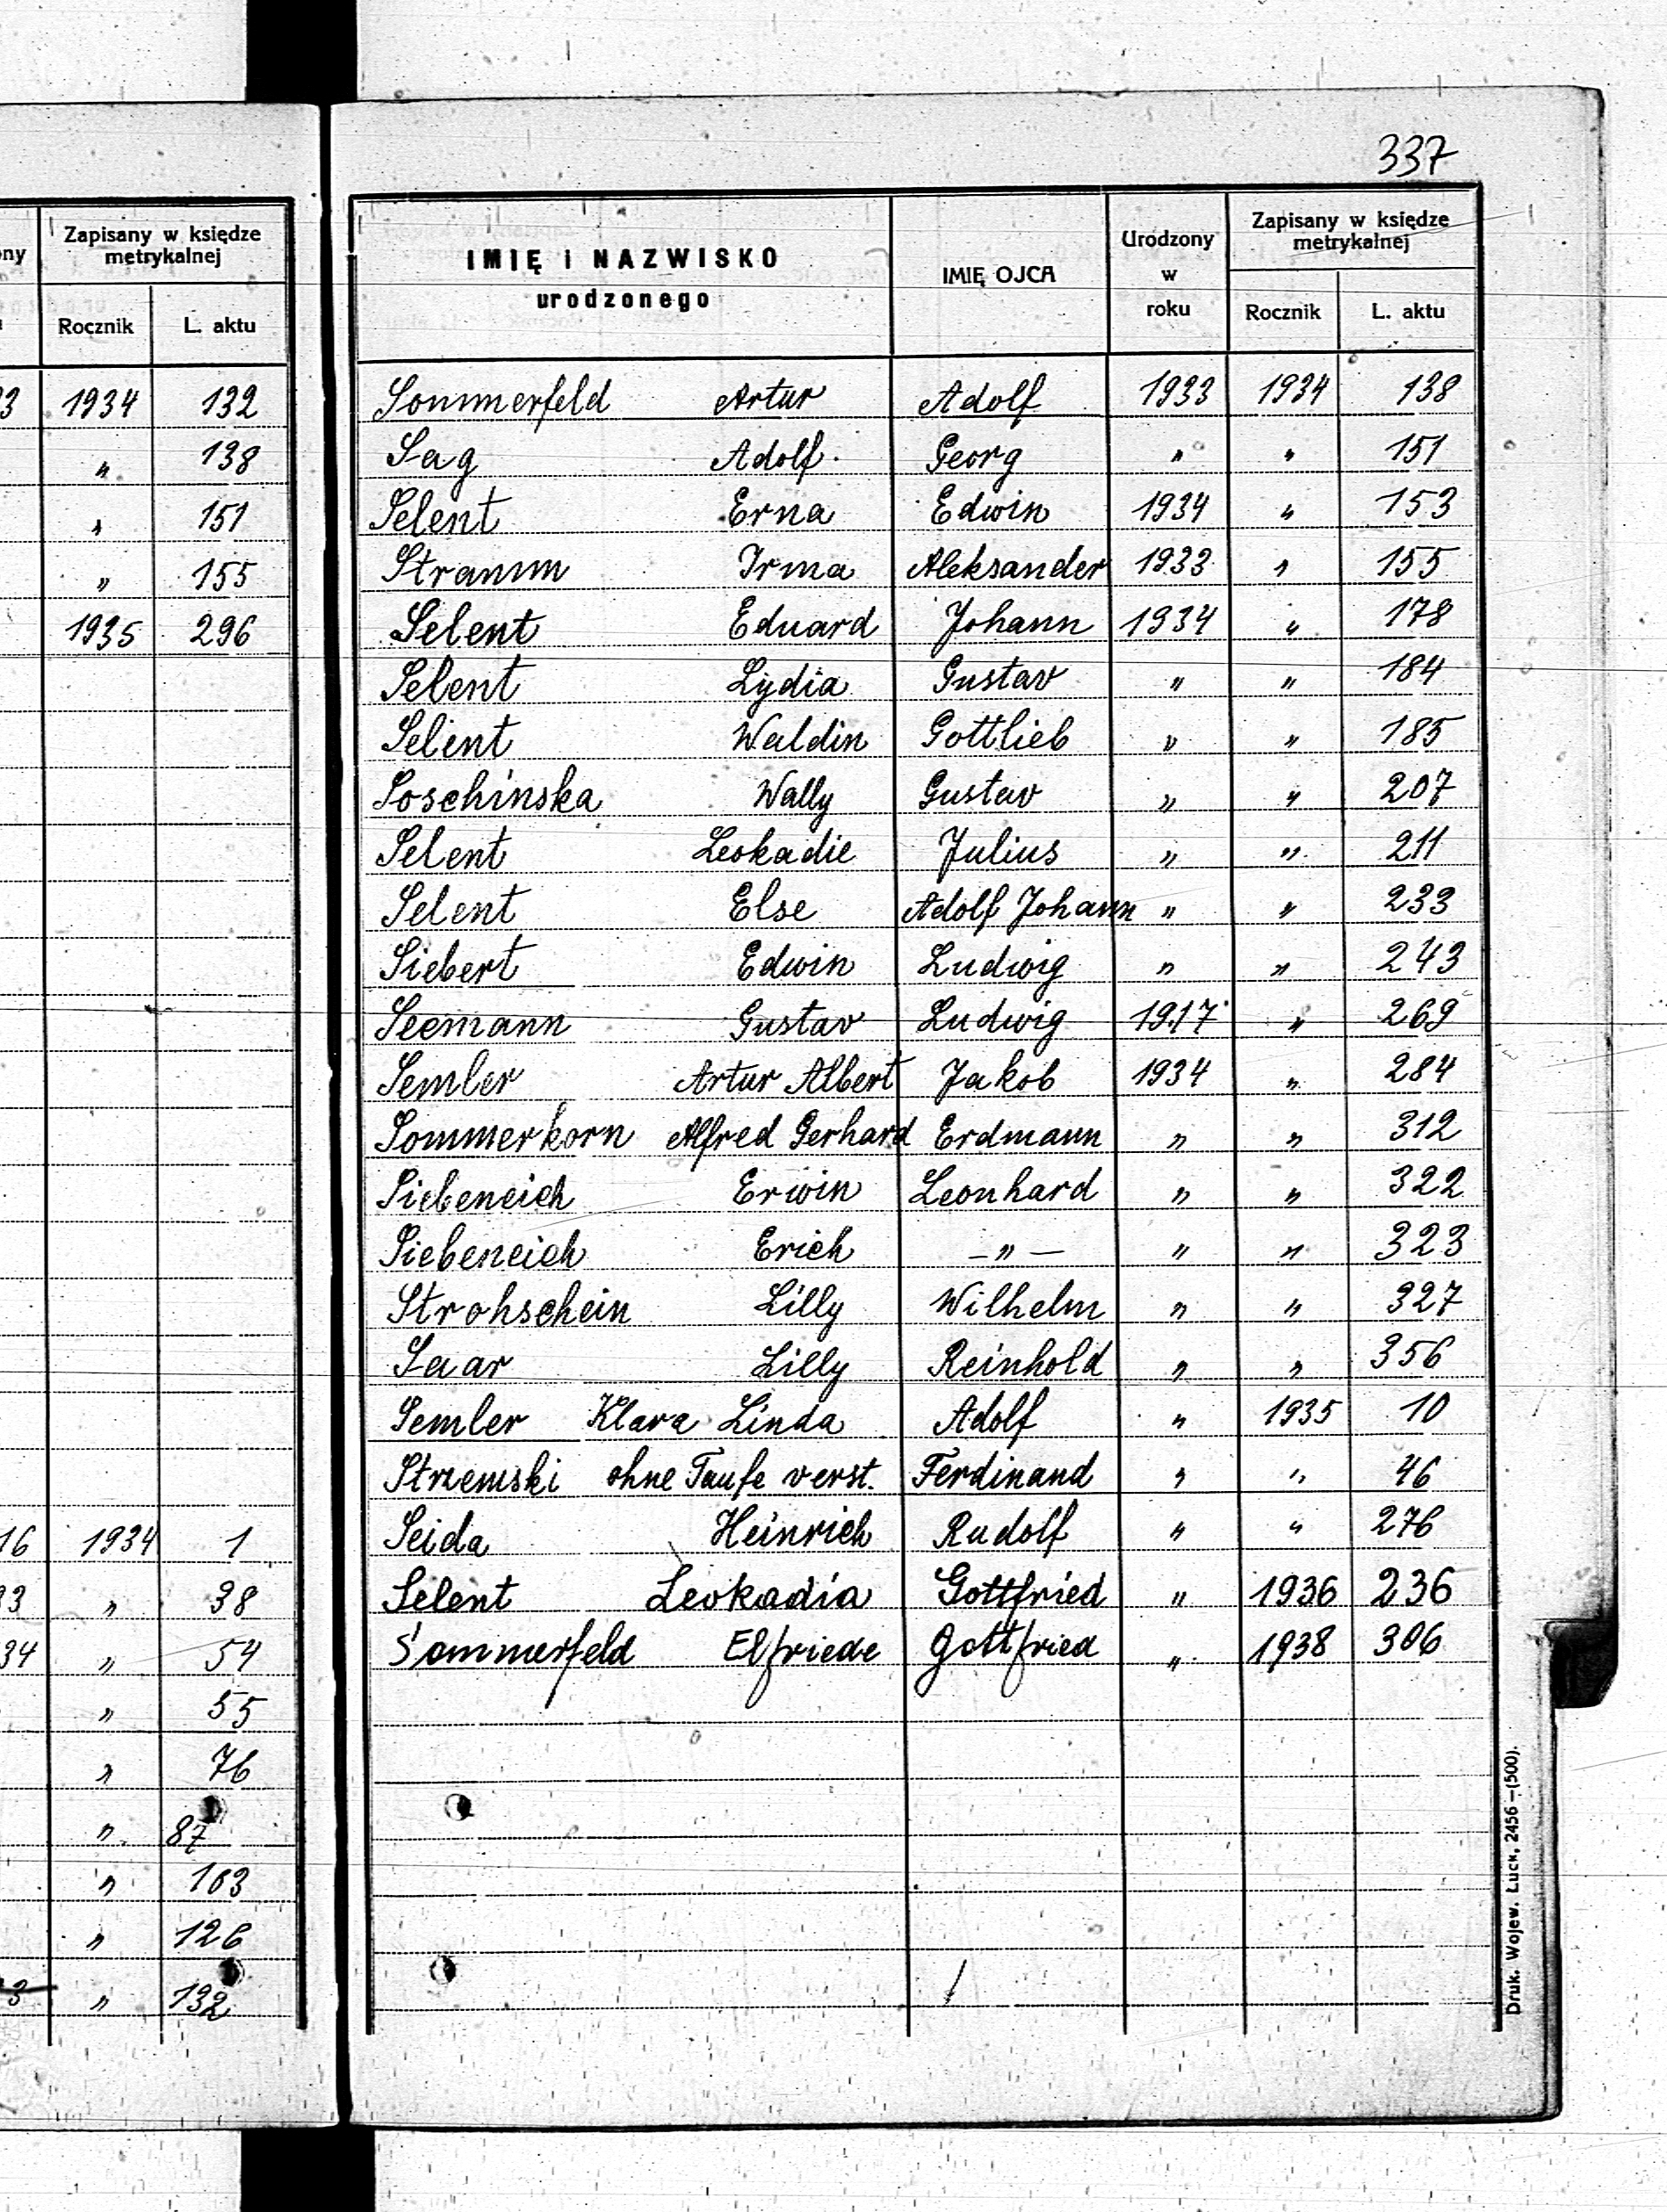 337
ny Zapisany w księdze metrykalnej
Rocznik L. aktu
3 1934 132
" 138
" 151
" 155
1935 296
16 1934 1
3 " 38
34 " 54
" 55
" 76
" 87
" 103
" 126
3 " 132
IMIĘ i NAZWISKO urodzonego IMIĘ OJCA Urodzony w roku Zapisany w księdze metrykalnej
Rocznik L. aktu
Sommerfeld Artur Adolf 1933 1934 138
Sag Adolf Georg " " 151
Selent Erna Edwin 1934 " 153
Stramm Irma Aleksander 1933 " 155
Selent Eduard Johann 1934 " 178
Selent Lydia Gustav " " 184
Selent Waldin Gottlieb " " 185
Soschinska Wally Gustav " " 207
Selent Leokadie Julius " " 211
Selent Else Adolf Johann " " 233
Siebert Edwin Ludwig " " 243
Seemann Gustav Ludwig 1917 " 269
Semler Artur Albert Jakob 1934 " 284
Sommerkorn Alfred Gerhard Erdmann " " 312
Siebeneich Erwin Leonhard " " 322
Siebeneich Erich – " – " " 323
Strohschein Lilly Wilhelm " " 327
Saar Lilly Reinhold " " 356
Semler Klara Linda Adolf " 1935 10
Strzemski ohne Taufe verst. Ferdinand " " 46
Seida Heinrich Rudolf " " 276
Selent Leokadia Gottfried " 1936 236
Sommerfeld Elfriede Gottfried " 1938 306
Druk. Wojew. Łuck, 2456 – (500).